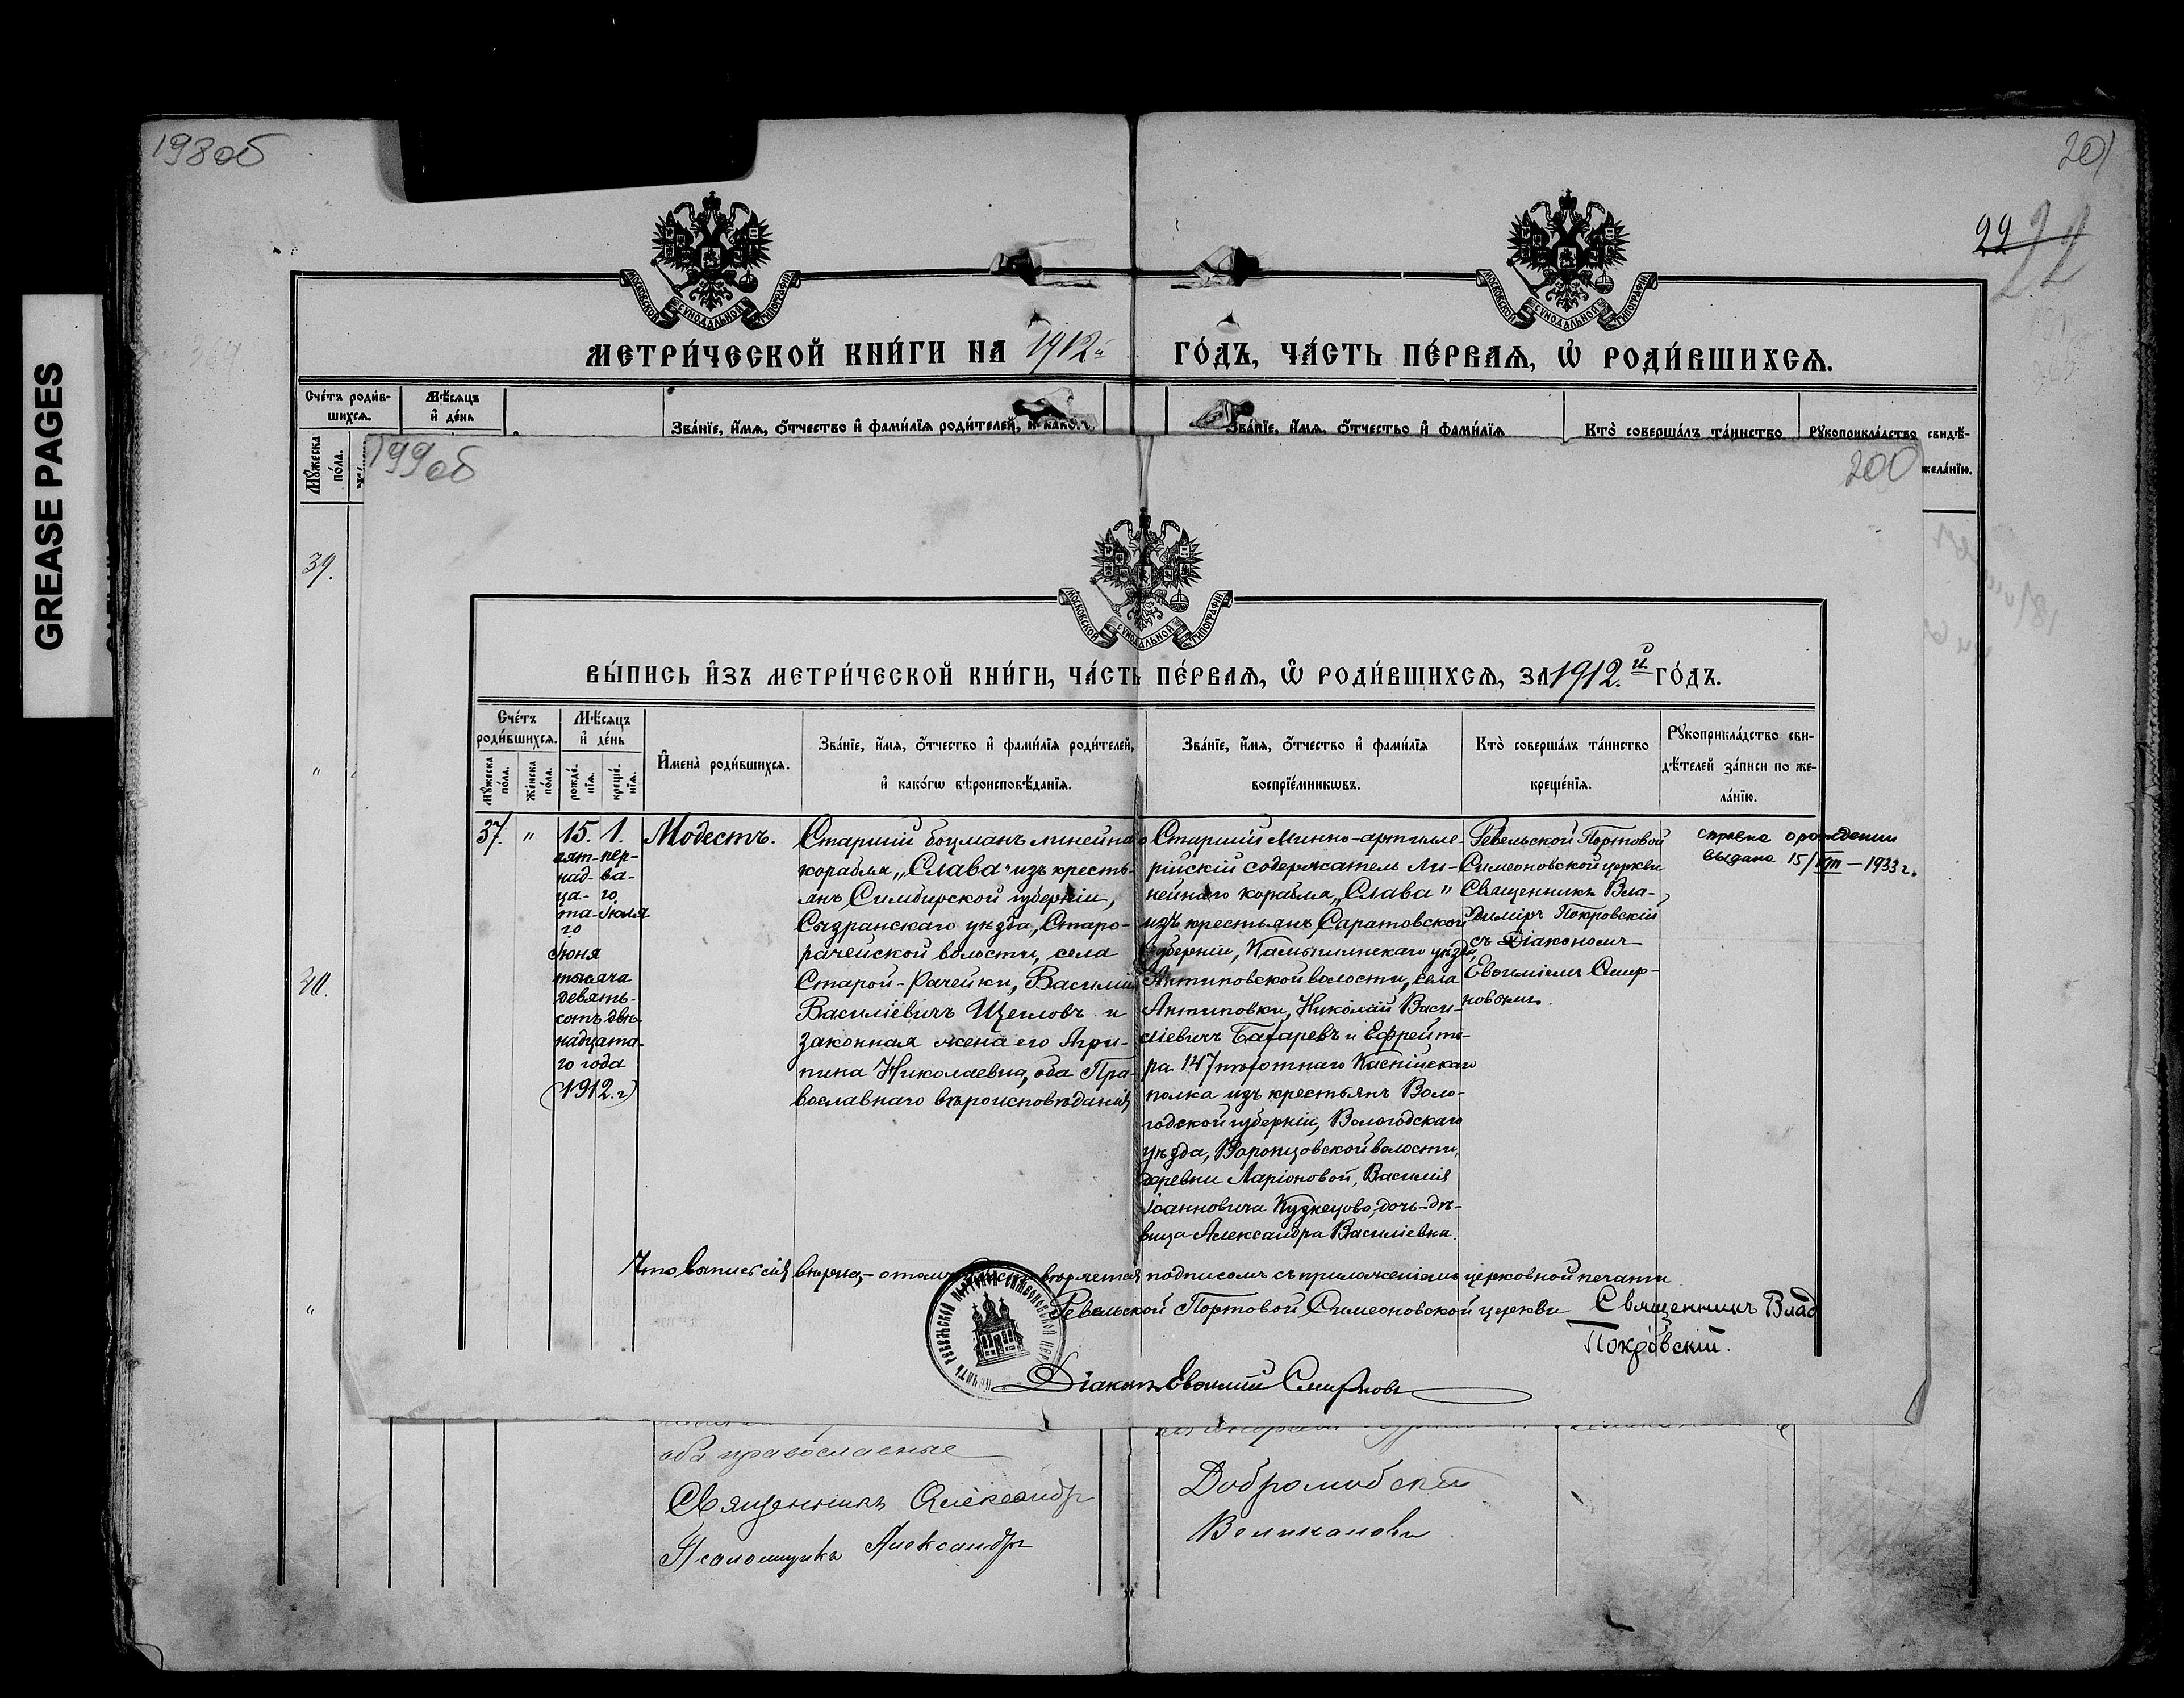 GREASE PAGES
198об
201
22
22
МОСКОВСКОЙ СѴНОДАЛЬНОЙ ТИПОГРАФІИ
МОСКОВСКОЙ СѴНОДАЛЬНОЙ ТИПОГРАФІИ
МЕТРИ́ЧЕСКОЙ КНИ́ГИ НА 1912й ГО́ДЪ, ЧА́СТЬ ПЕ́РВАѦ, Ѡ҆ РОДИ́ВШИХСѦ.
Сче́тъ роди́в-
шихсѧ.
Мѣ́сѧцъ
и҆ де́нь
Зва́нїе, и҆́мѧ, ѻ҆́тчество и҆ фами́лїѧ роди́телей, и҆ како́гѡ
Зва́нїе, и҆́мѧ, ѻ҆́тчество и҆ фами́лїѧ
Кто̀ соверша́лъ та́инство
Рꙋкоприкла́дство свидѣ́-
жела́нїю.
Мꙋ́жеска
по́ла.
199об
200
39.
"
40.
"
МОСКОВСКОЙ СѴНОДАЛЬНОЙ ТИПОГРАФІИ
ВЫ́ПИСЬ И҆ЗЪ МЕТРИ́ЧЕСКОЙ КНИ́ГИ, ЧА́СТЬ ПЕ́РВАѦ, Ѡ҆ РОДИ́ВШИХСѦ, ЗА 1912.й ГО́ДЪ.
Сче́тъ
роди́вшихсѧ.
Мꙋ́жеска
по́ла.
Же́нска
по́ла.
Мѣ́сѧцъ
и҆ де́нь
рожде́-
нїѧ.
креще́-
нїѧ.
И҆мена̀ роди́вшихсѧ.
Зва́нїе, и҆́мѧ, ѻ҆́тчество и҆ фами́лїѧ роди́телей,
и҆ како́гѡ вѣроисповѣ́данїѧ.
Зва́нїе, и҆́мѧ, ѻ҆́тчество и҆ фами́лїѧ
воспрїе́мникѡвъ.
Кто̀ соверша́лъ та́инство
креще́нїѧ.
Рꙋкоприкла́дство сви-
дѣ́телей за́писи по же-
ла́нїю.
37.
"
15.
пят-
над-
ца-
та-
го
Іюня
тысяча
девять-
сотъ двѣ-
надцата-
го года
(1912.г)
1.
пер-
ва-
го
Іюля
Модестъ.
Старшій боцманъ линейнаго
корабля „Слава" изъ кресть-
янъ Симбирской губерніи,
Сызранскаго уѣзда, Старо-
рачейской волости, села
Старой-Рачейки, Василій
Василіевичъ Щегловъ и
законная жена его Агри-
пина Николаевна, оба Пра-
вославнаго вѣроисповѣданія
Старшій Минно-артилле-
рійскій содержатель Ли-
нейнаго корабля „Слава"
изъ крестьянъ Саратовской
губерніи, Камышинскаго уѣзда
Антиповской волости, села
Антиповки, Николай Васи-
ліевичъ Батаревъ и Ефрейто-
ра 147 пѣхотнаго Каспійскаго
полка изъ крестьянъ Воло-
годской губерніи, Вологодскаго
уѣзда, Воронцовской волости,
деревни Ларіоновой, Василія
Іоанновича Кузнецова, дочь-дѣ-
вица Александра Василіевна.
Ревельской Портовой
Симеоновской церкви
Священникъ Вла-
димiръ Покровскій
съ Діакономъ
Евѳиміемъ Смир-
новомъ.
справка о рождении
выдана 15/VIII – 1933 г.
Что выпись сія вѣрна,- о томъ вѣряется подписомъ съ приложеніемъ церковной печати
Ревельской Портовой Симеоновской церкви Священникъ Влад
Покровскій.
Діаконъ Евѳимій Смирновъ
оба православные
Священникъ Александръ
Добромобскій
Псаломщикъ Александръ
Великановъ